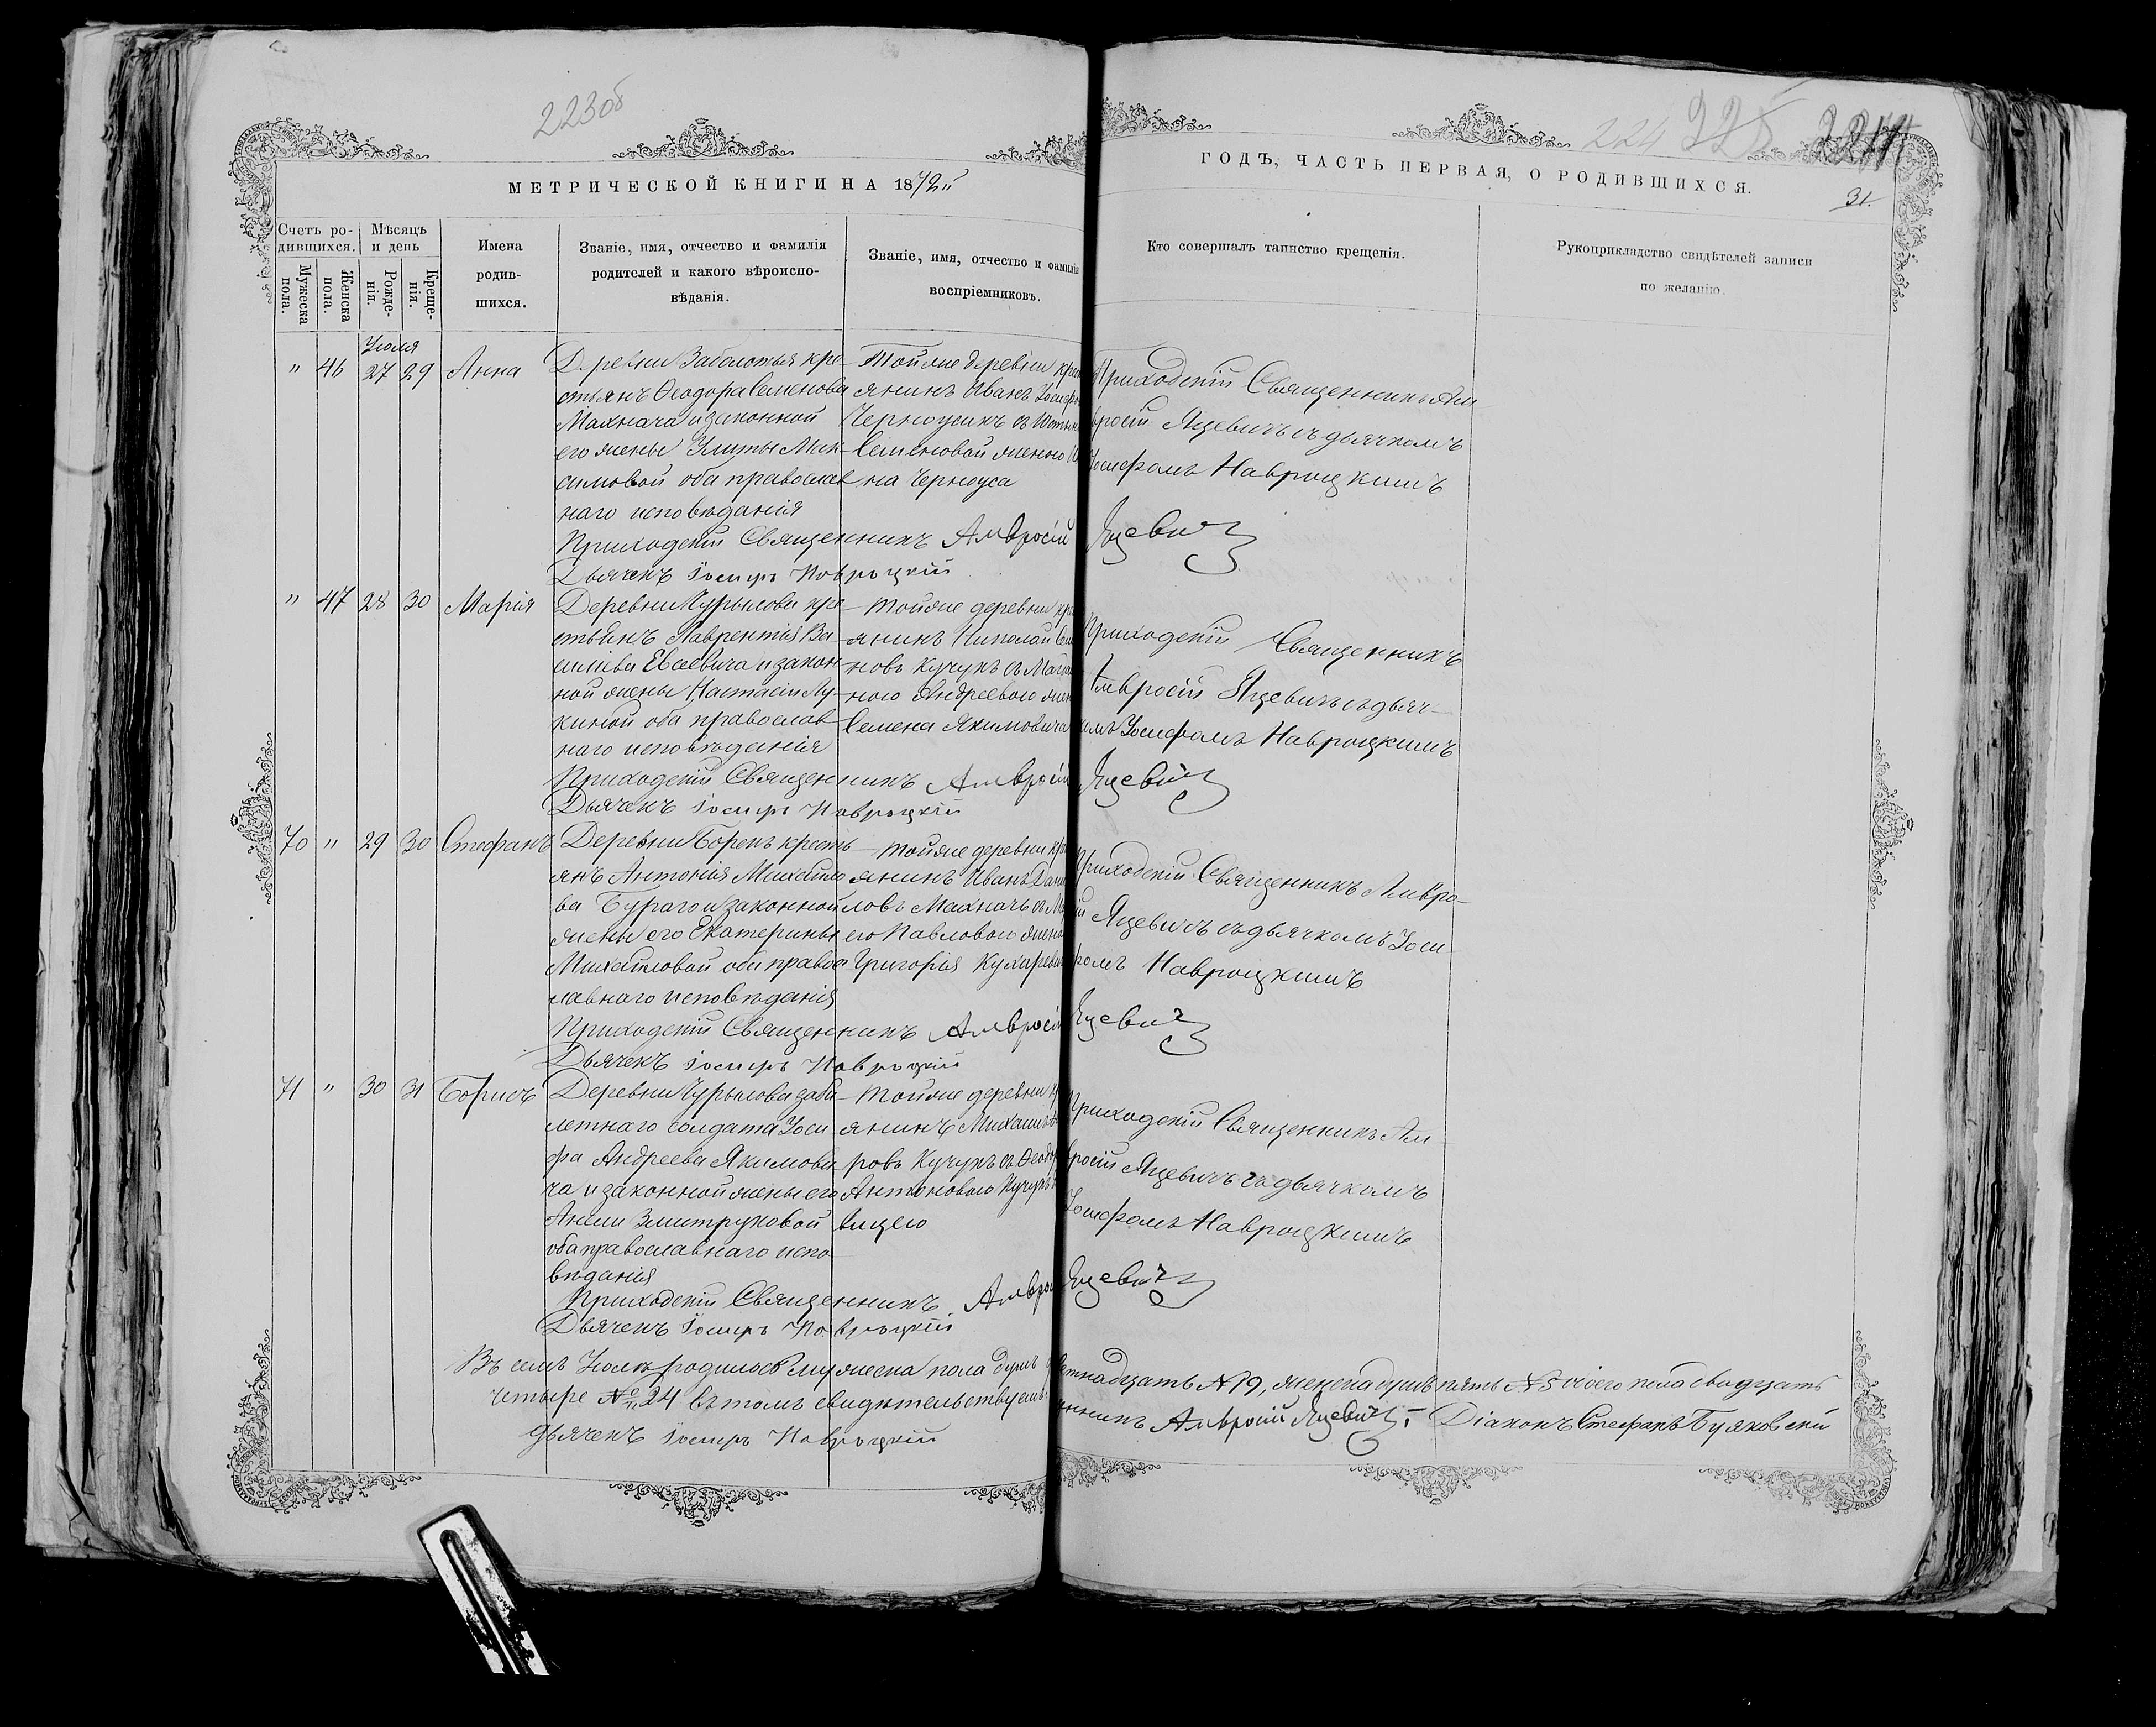 223об
224 225
31.
МЕТРИЧЕСКОЙ КНИГИ НА 1872й
ГОДЪ, ЧАСТЬ ПЕРВАЯ, О РОДИВШИХСЯ.
Счетъ ро-
дившихся.
Мужеска
пола.
Женска
пола.
Мѣсяцъ
и день
Рожде-
нія.
Креще-
нія.
Имена
родив-
шихся.
Званіе, имя, отчество и фамилія
родителей и какого вѣроиспо-
вѣданія.
Званіе, имя, отчество и фамилія
воспріемниковъ.
Кто совершалъ таинство крещенія.
Рукоприкладство свидѣтелей записи
по желанію.
Іюля
" 46 27 29 Анна
Деревни Заболотья кре-
стьянъ Ѳеодора Семенова
Махнача и законной
его жены Улиты Мак-
симовой оба православ
наго исповѣданія
Тойже деревни
янинъ Иванъ
Семеновой женою
на Черноуса
Приходскій Священникъ Ам-
вросій Яцевичъ съ дьячкомъ
Іосифомъ Навроцкимъ
Приходскій Священникъ Амвросій Яцевич
Дьячекъ Іосифъ Навроцкій
" 47 28 30 Марія
Деревни Чурылова кре-
стьянъ Лаврентія Ва
силіева Евсевича и закон
ной жены Настасіи Лу-
киной оба православ
наго исповѣданія
Тойже деревни
янинъ Николай
новъ Кучукъ съ
ною Андреевою
Семена Якимовича
Приходскій Священникъ
Амвросій Яцевичъ съ дьяч-
комъ Іосифомъ Навроцкимъ
Приходскій Священникъ Амвросій Яцевич
Дьячекъ Іосифъ Навроцкій
70 " 29 30 Стефанъ
Деревни Борекъ кресть
янъ Антонія Михайло
ва Бураго и законной
жены его Екатерины
Михайловой оба правос
лавнаго исповѣданія
Тойже деревни
янинъ Иванъ
ловъ Махначъ съ
его Павловою
Григорія
Приходскій Священникъ Амвро-
сій Яцевичъ съ дьячкомъ Іоси-
фомъ Навроцкимъ
Приходскій Священникъ Амвросій Яцевич
Дьячекъ Іосифъ Навроцкій
71 " 30 31 Борисъ
Деревни Чурылова заби
летнаго солдата Іоси
фа Андреева Якимови
ча и законной жены его
Анели Змитруковой
оба православнаго испо
вѣданія
Тойже деревни
янинъ Михаилъ
ровъ Кучукъ съ
Антоновою
вицею
Приходскій Священникъ Ам-
вросій Яцевичъ съ дьячкомъ
Іосифомъ Навроцкимъ
Приходскій Священникъ Амвросій Яцевич
Дьячекъ Іосифъ Навроцкій
Въ семъ Іюлѣ родилось мужеска пола душъ девятнадцать №19, женска душъ пять №5 обоего пола двадцать
четыре №24 въ томъ свидѣтельствуемъ Амвросій Яцевич. Діаконъ Стефанъ Буяковскій
дьячекъ Іосифъ Навроцкій